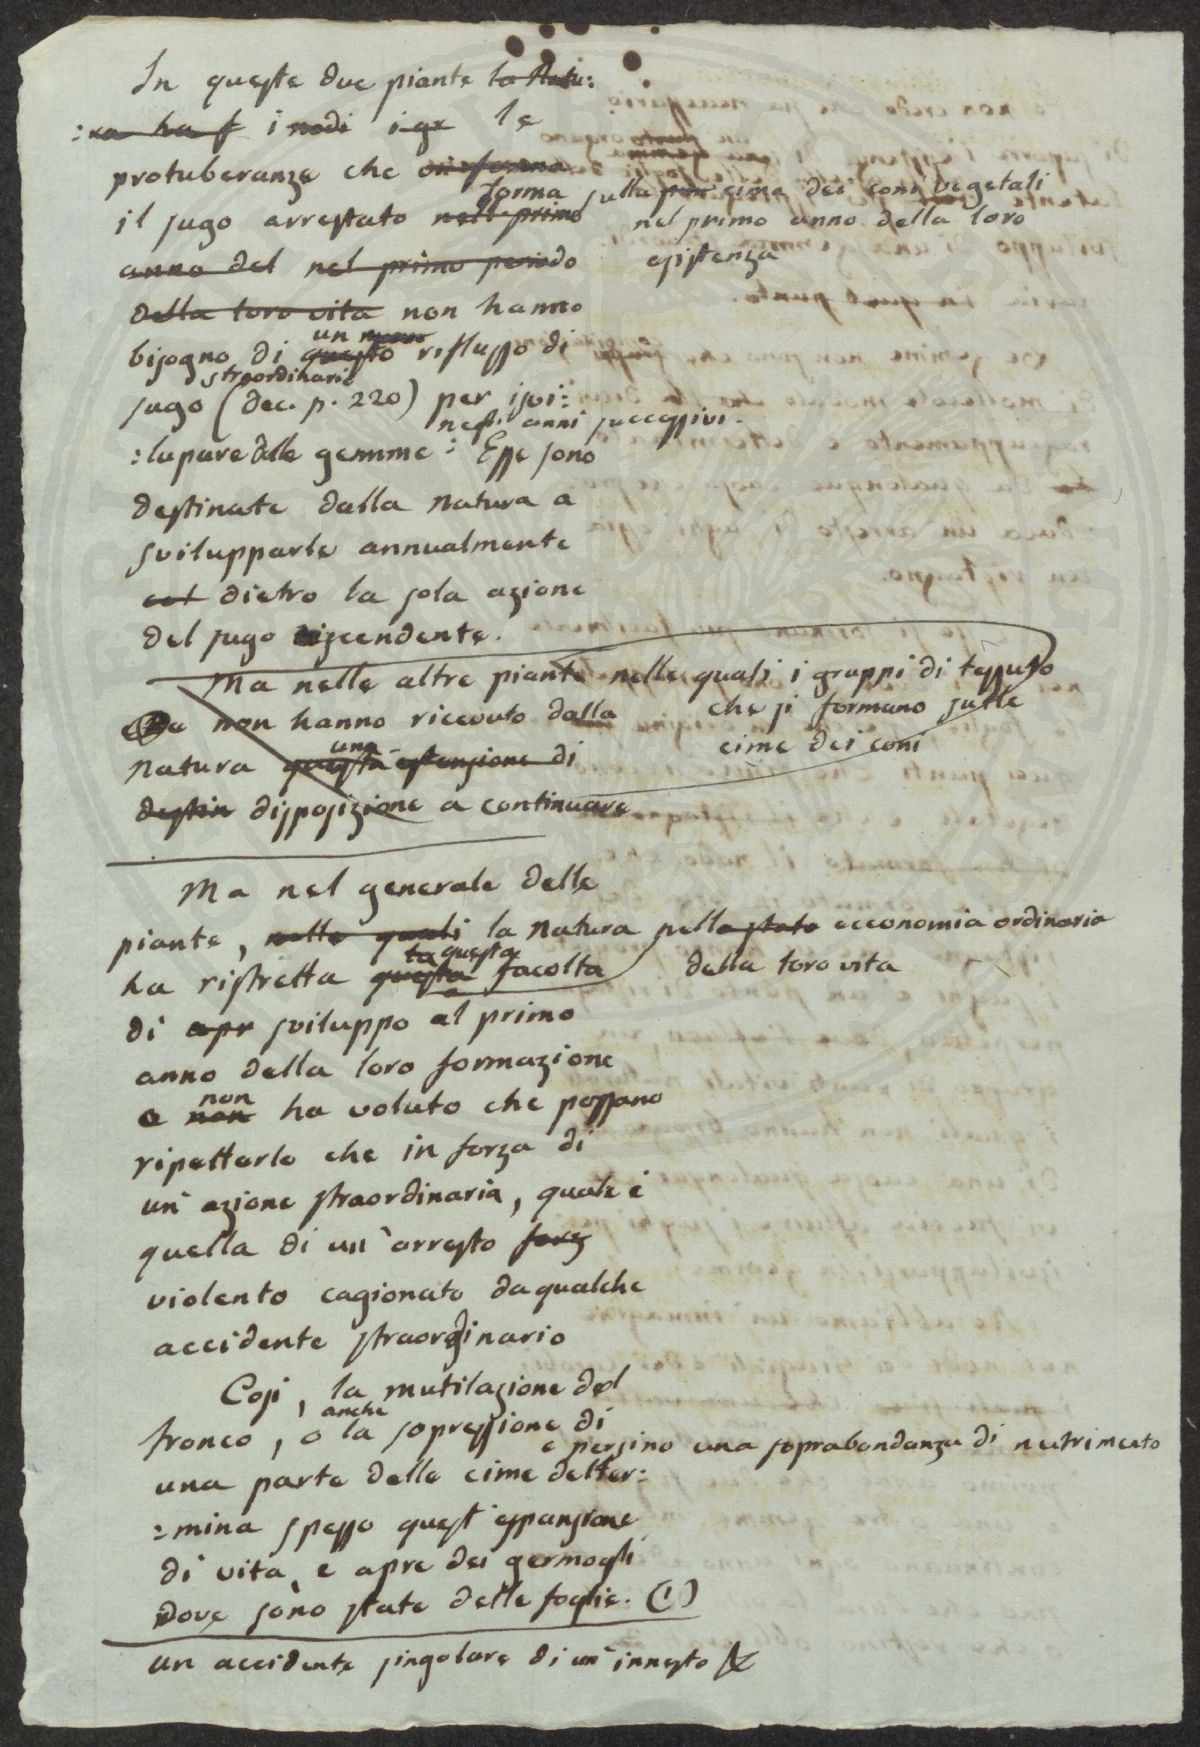 In queste due piante la Natu:
:ra ha f i nodi i gr le
protuberanze che vi forma
forma sulla cima dei coni vegetali
il sugo arrestato nell primo nel primo anno della loro
anno del nel primo periodo esistenza
della loro vita non hanno
un nuovo
bisogno di questo riflusso di
straordinario
sugo (dec. p. 220) per isvi:
negli anni successivi.
:lupare delle gemme: Esse sono
destinate dalla Natura a
svilupparle annualmente
col dietro la sola azione
del sugo discendente.
Ma nelle altre piante nelle quali i gruppi di tessuto
non hanno ricevuto dalla che si formano sulle
una
Natura questa estensione di cime dei coni
destin disposizione a continuare
Ma nel generale delle
piante, nelle quali la Natura nello stato economia ordinaria
ta questa
ha ristretta questa facolta della loro vita
di apr sviluppo al primo
anno della loro formazione
non
e non ha voluto che possano
ripetterlo che in forza di
un' azione straordinaria, quale è
quella di un' arresto forz
violento cagionato da qualche
accidente straordinario
Cosi, la mutilazione del
anche
tronco, o la sopressione di
e persino una soprabondanza di nutrimento
una parte delle cime detter:
:mina spesso quest' espansione
di vita, e apre dei germogli
dove sono state delle foglie. (1)
un accidente singolare di un' innesto &c